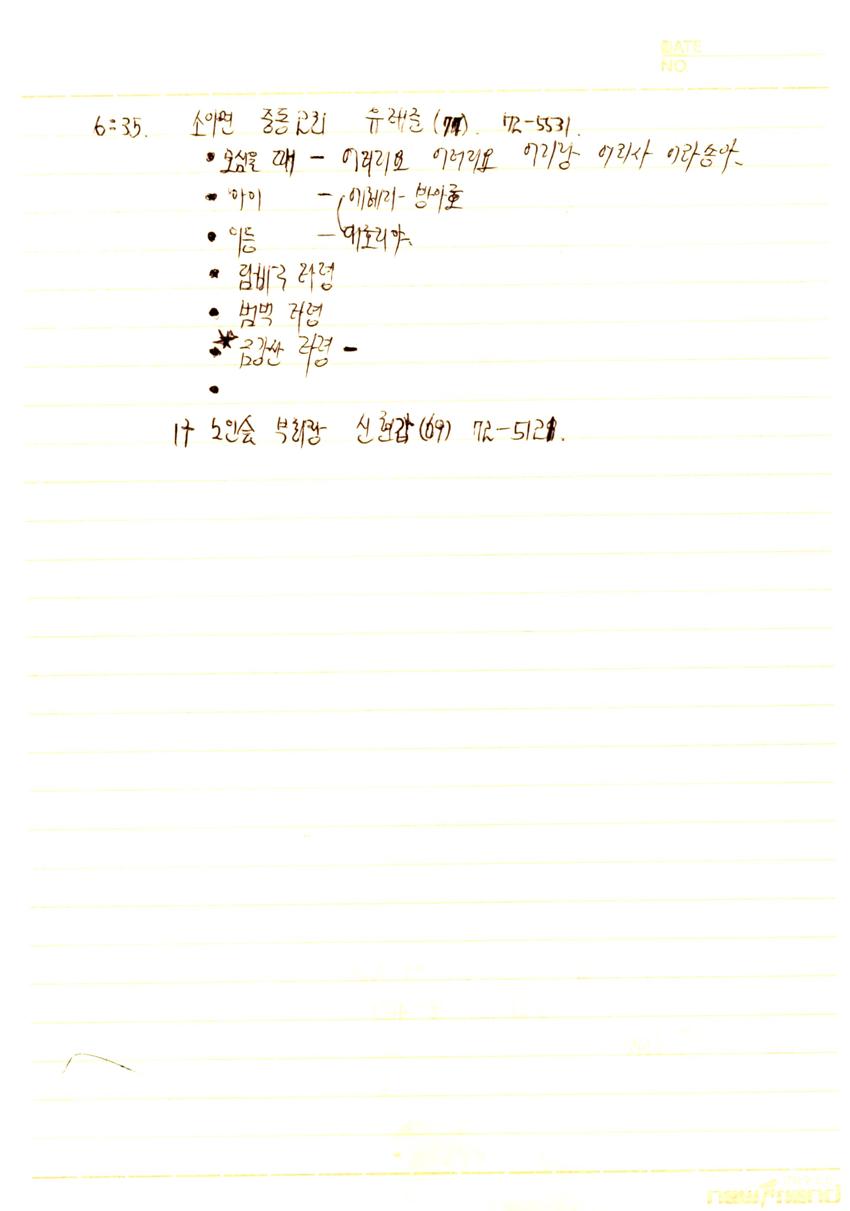 DATE
NO
6:35. 소이면 중동2리 유래준 (71). 72-5531.
• 모심을 때 - 어러리요 어러리요 어리낭 어리사 어라송아.
• 아이 - 에헤라- 방아호
• 이듬 - 에호리야.
• 타령
• 범벅 타령
• 금강산 타령 -
•
노인회 부회장 신현갑 (69) 72-5121.